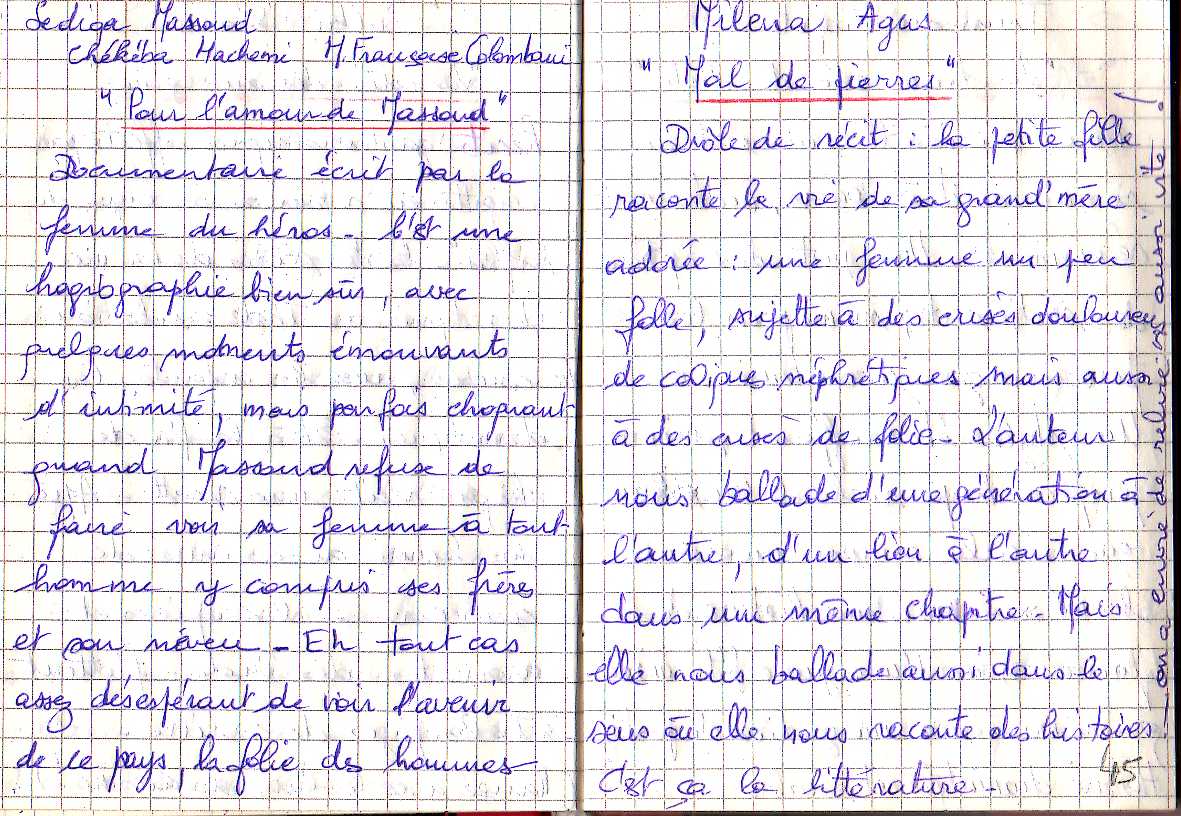 Sediqa Massoud
Chékéba Hachemi M. Françoise Colombani
"Pour l'amour de Massoud"
Documentaire écrit par la
femme du héros - C'est une
hagiographie bien sûr, avec
quelques moments émouvants
d'intimité, mais parfois choquant
quand Massoud refuse de
faire voir sa femme à tout
homme y compris ses frères
et son neveu - En tout cas
assez désespérant de voir l'avenir
de ce pays, la folie des hommes
Milena Agus
"Mal de pierres"
Drôle de récit : la petite fille
raconte la vie de sa grand'mère
adorée : une femme un peu
folle, sujette à des crises douloureuses
de coliques néphrétiques mais aussi
à des crises de folie - L'auteur
nous ballade d'une génération à
l'autre, d'un lieu à l'autre
dans un même chapitre - Mais
elle nous ballade aussi dans le
sens où elle nous raconte des histoires -
C'est ça la littérature -
on a envie de relire aussi vite !
45